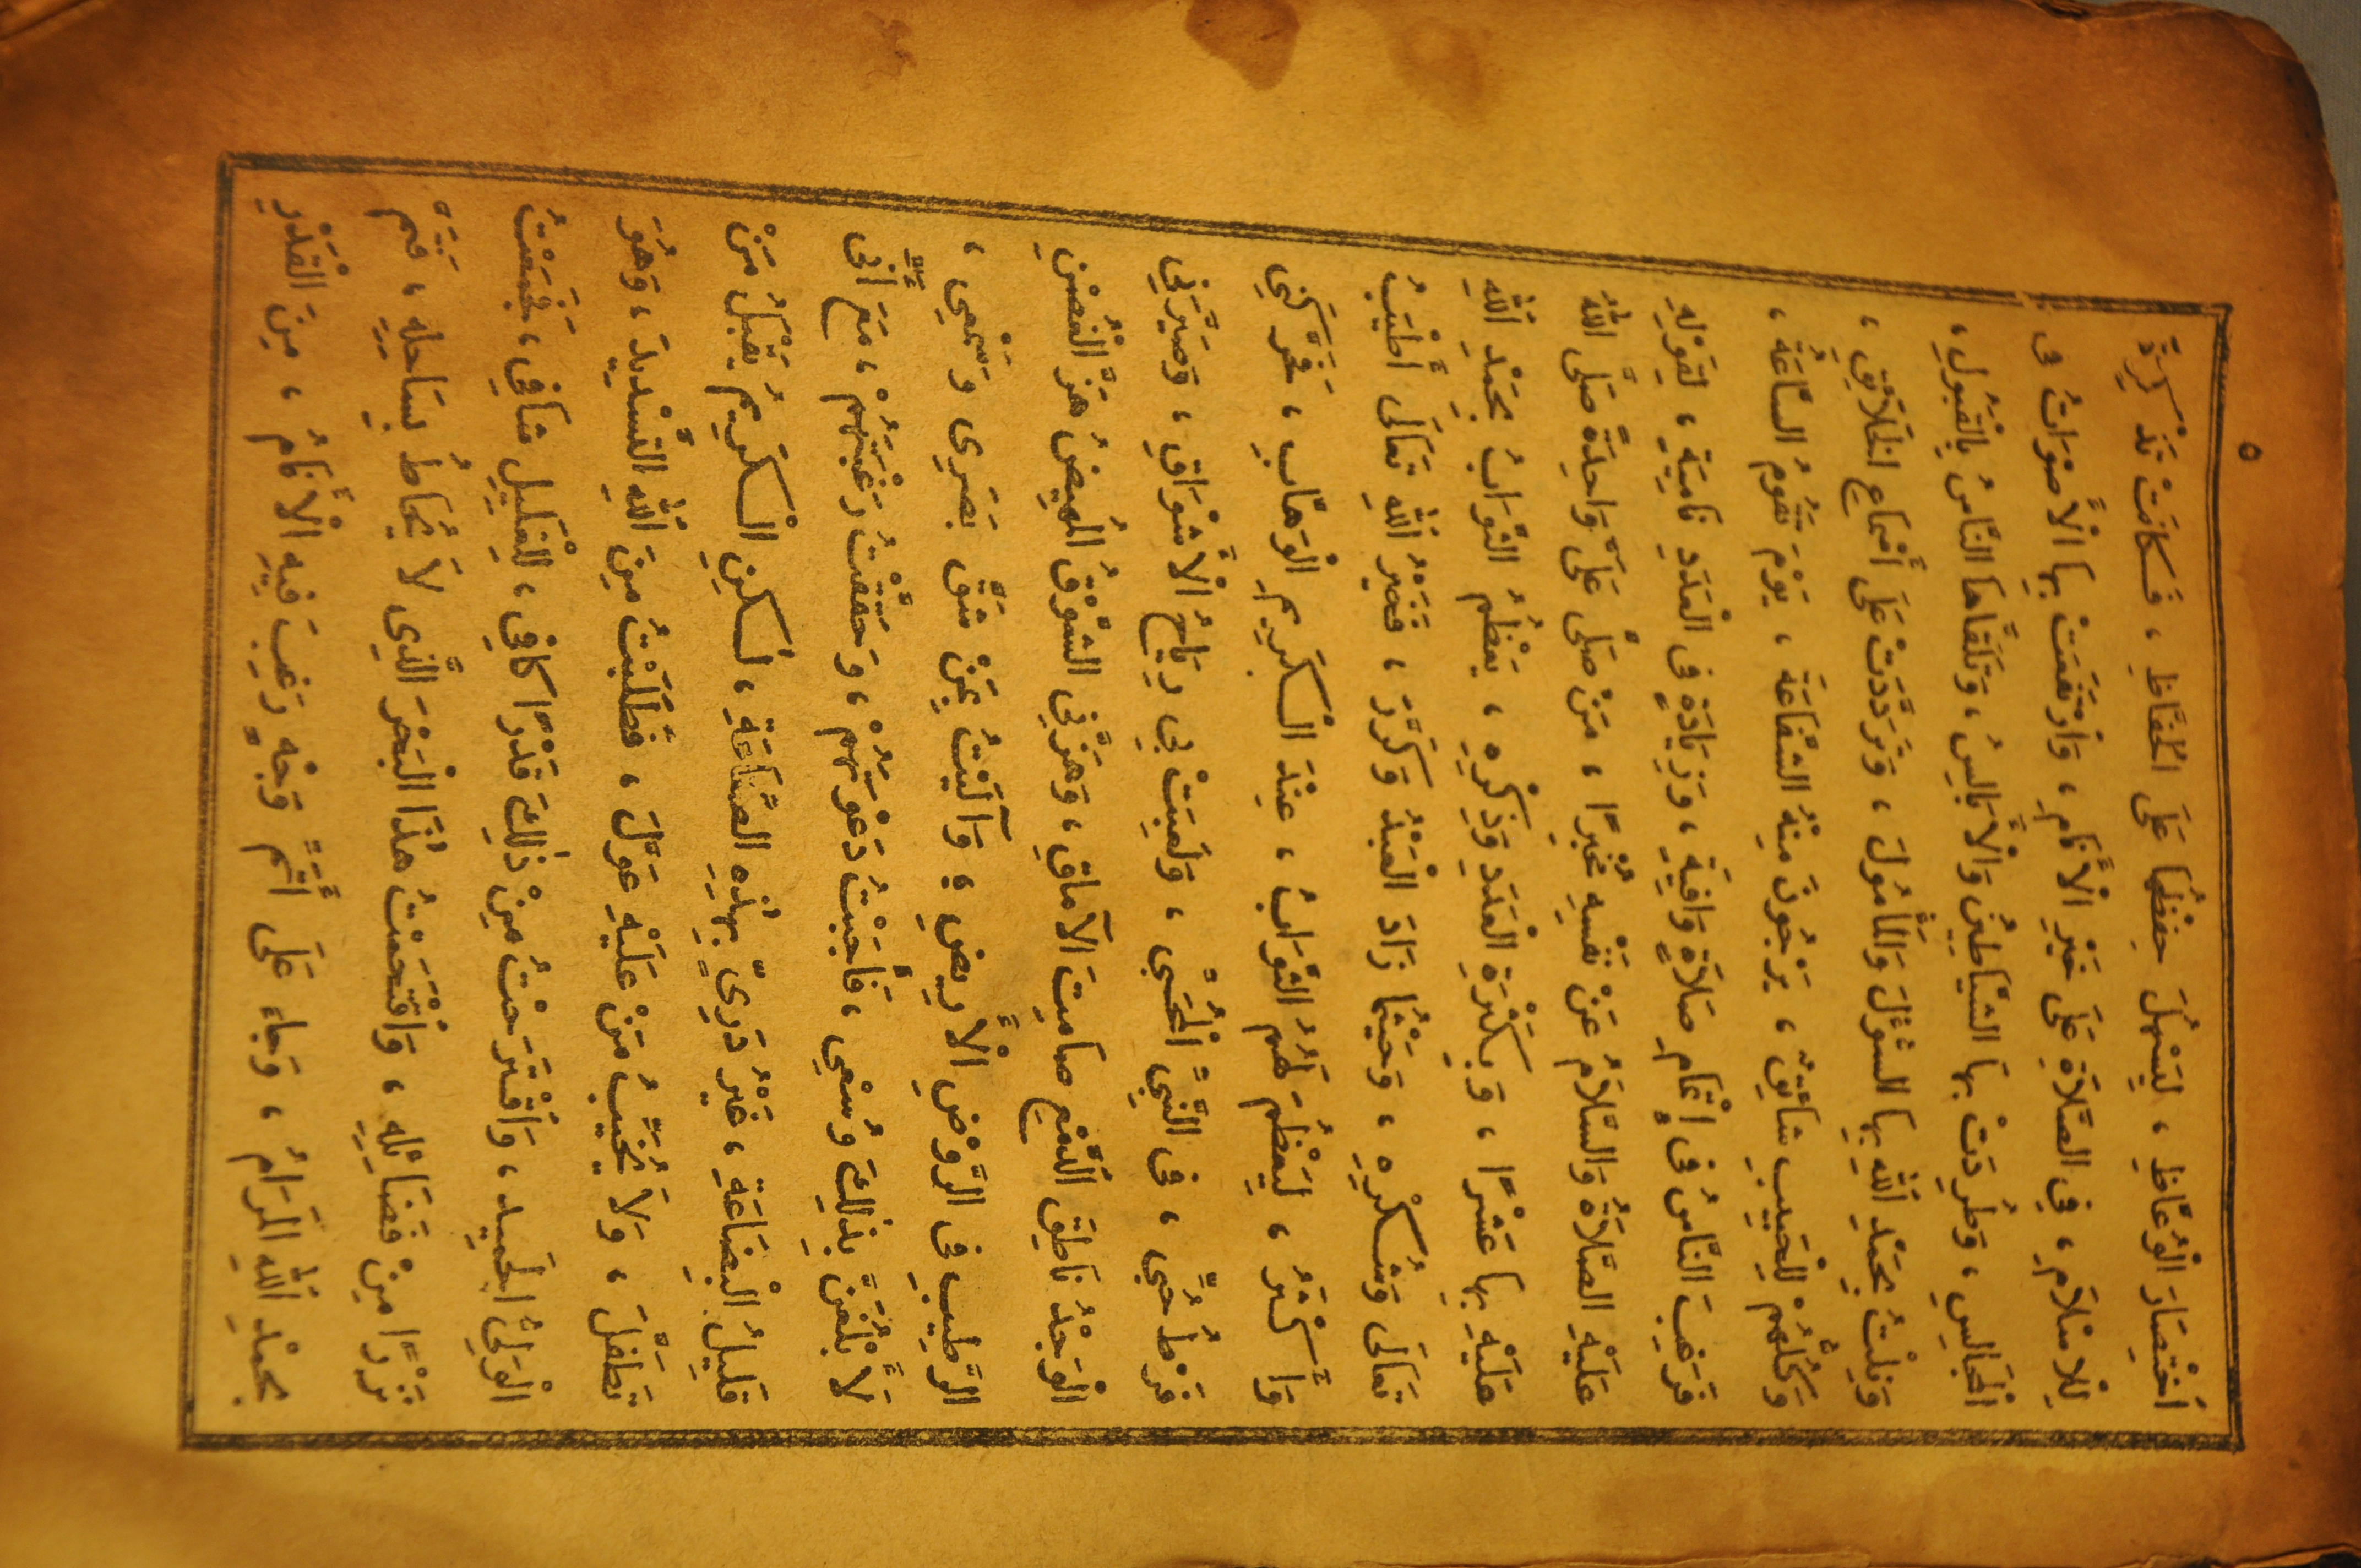 ٥
اَخْتِصَارَ الْوُعَّاظِ ، لِيَسْهُلَ حِفْظُهَا عَلَى الْحُفَّاظِ ، فَكَانَتْ تَذْكِرَةً
لِلْاِسْلَامِ ، فِي الصَّلَاةِ عَلَى خَيْرِ الْأَنَامِ ، وَارْتَفَعَتْ بِهَا الْأَصْوَاتُ فِى
الْمَجَالِسِ ، وَطُرِدَتْ بِهَا الشَّيَاطِينُ وَالْأَبَالِسُ ، وَتَلَقَّاهَا النَّاسُ بِالْقَبُولِ ،
وَنِلْتُ بِحَمْدِ اللهِ بِهَا السُّؤْلَ وَالْمَأْمُولَ ، وَتَرَدَّدَتْ عَلَى أَسْمَاعِ الْخَلَائِقِ ،
وَكُلُّهُمْ لِلْحَبِيبِ شَائِقٌ ، يَرْجُونَ مِنْهُ الشَّفَاعَةَ ، يَوْمَ تَقُومُ السَّاعَةُ ،
فَرَغِبَ النَّاسُ فِى إِتْمَامِ صَلَاةٍ وَافِيَةٍ ، وَزِيَادَةٍ فِى الْعَدَدِ نَامِيَةٍ ، لِقَوْلِهِ
عَلَيْهِ الصَّلَاةُ وَالسَّلَامُ عَنْ نَفْسِهِ مُخْبِرًا ، مَنْ صَلَّى عَلَىَّ وَاحِدَةً صَلَّى اللهُ
عَلَيْهِ بِهَا عَشْرًا ، وَبِكَثْرَةِ الْعَدَدِ وَذِكْرِهِ ، يَعْظُمُ الثَّوَابُ بِحَمْدِ اللهِ
تَعَالَى وَشُكْرِهِ ، وَحَيْثُمَا زَادَ الْعَبْدُ وَكَرَّرَ ، فَخَيْرُ اللهِ تَعَالَى أَطْيَبُ
وَأَكْثَرُ ، لِيَعْظُمَ لَهُمُ الثَّوَابُ ، عِنْدَ الْكَرِيمِ الْوَهَّابِ ، فَحَرَّكَنِي
فَرْطُ حُبِّى ، فِى النَّبِىِّ الْمُحَبِّى ، وَلَعِبَتْ بِى رِيَاحُ الْأَشْوَاقِ ، وَصَيَّرَنِي
الْوَجْدُ نَاطِقَ الدَّمْعِ صَامِتَ الْآمَاقِ ، وَهَزَّنِى الشَّوْقُ الْمُهِيضُ هَزَّ الْغُصْنِ
الرَّطِيبِ فِى الرَّوْضِ الْأَرِيضِ ؛ وَآلَيْتُ بِمَنْ شَقَّ بَصَرِى وَسَمْعِى ،
لَأَبْلُغَنَّ بِذٰلِكَ وُسْعِى ، فَأَجَبْتُ دَعْوَتَهُمْ ، وَحَقَّقْتُ رَغْبَتَهُمْ ، مَعَ أَنِّى
قَلِيلُ الْبِضَاعَةِ ، غَيْرُ دَرِىٍّ بِهٰذِهِ الصِّنَاعَةِ ، لٰكِنِ الْكَرِيمُ يَقْبَلُ مَنْ
تَطَفَّلَ ، وَلَا يُخَيِّبُ مَنْ عَلَيْهِ عَوَّلَ ، فَطَلَبْتُ مِنَ اللهِ التَّسْدِيدَ ، وَهُوَ
الْوَلِىُّ الْحَمِيدُ ، وَاقْتَرَحْتُ مِنْ ذٰلِكَ قَدْرًا كَافِى ، لِلْغَلِيلِ شَافِى ، فَجَمَعْتُ
نَزْرًا مِنْ فَضَائِلِهِ ، وَاقْتَحَمْتُ هٰذَا الْبَحْرَ الَّذِى لَا يُحَاطُ بِسَاحِلِهِ ، فَتَمَّ
بِحَمْدِ اللهِ الْمَرَامُ ، وَجَاءَ عَلَى أَتَمِّ وَجْهٍ رَغِبَ فِيهِ الْأَنَامُ ، مِنَ الْقَدْرِ